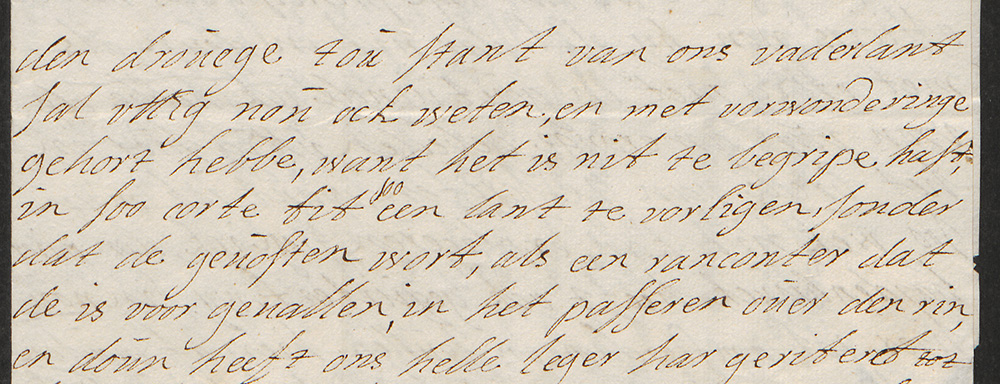 den droūege toū stant van ons vaderlant
sal uEdg noū ock weten, en met vorwonderinge
gehort hebbe, want het is nit te begripe hast,
in soo corte tit soo een lant te vorligen, sonder
dat de geūosten wort, als een ranconter dat
de is voor geuallen, in het passeren oūer den rin,
en doūn heeft ons helle leger har geriteret tot